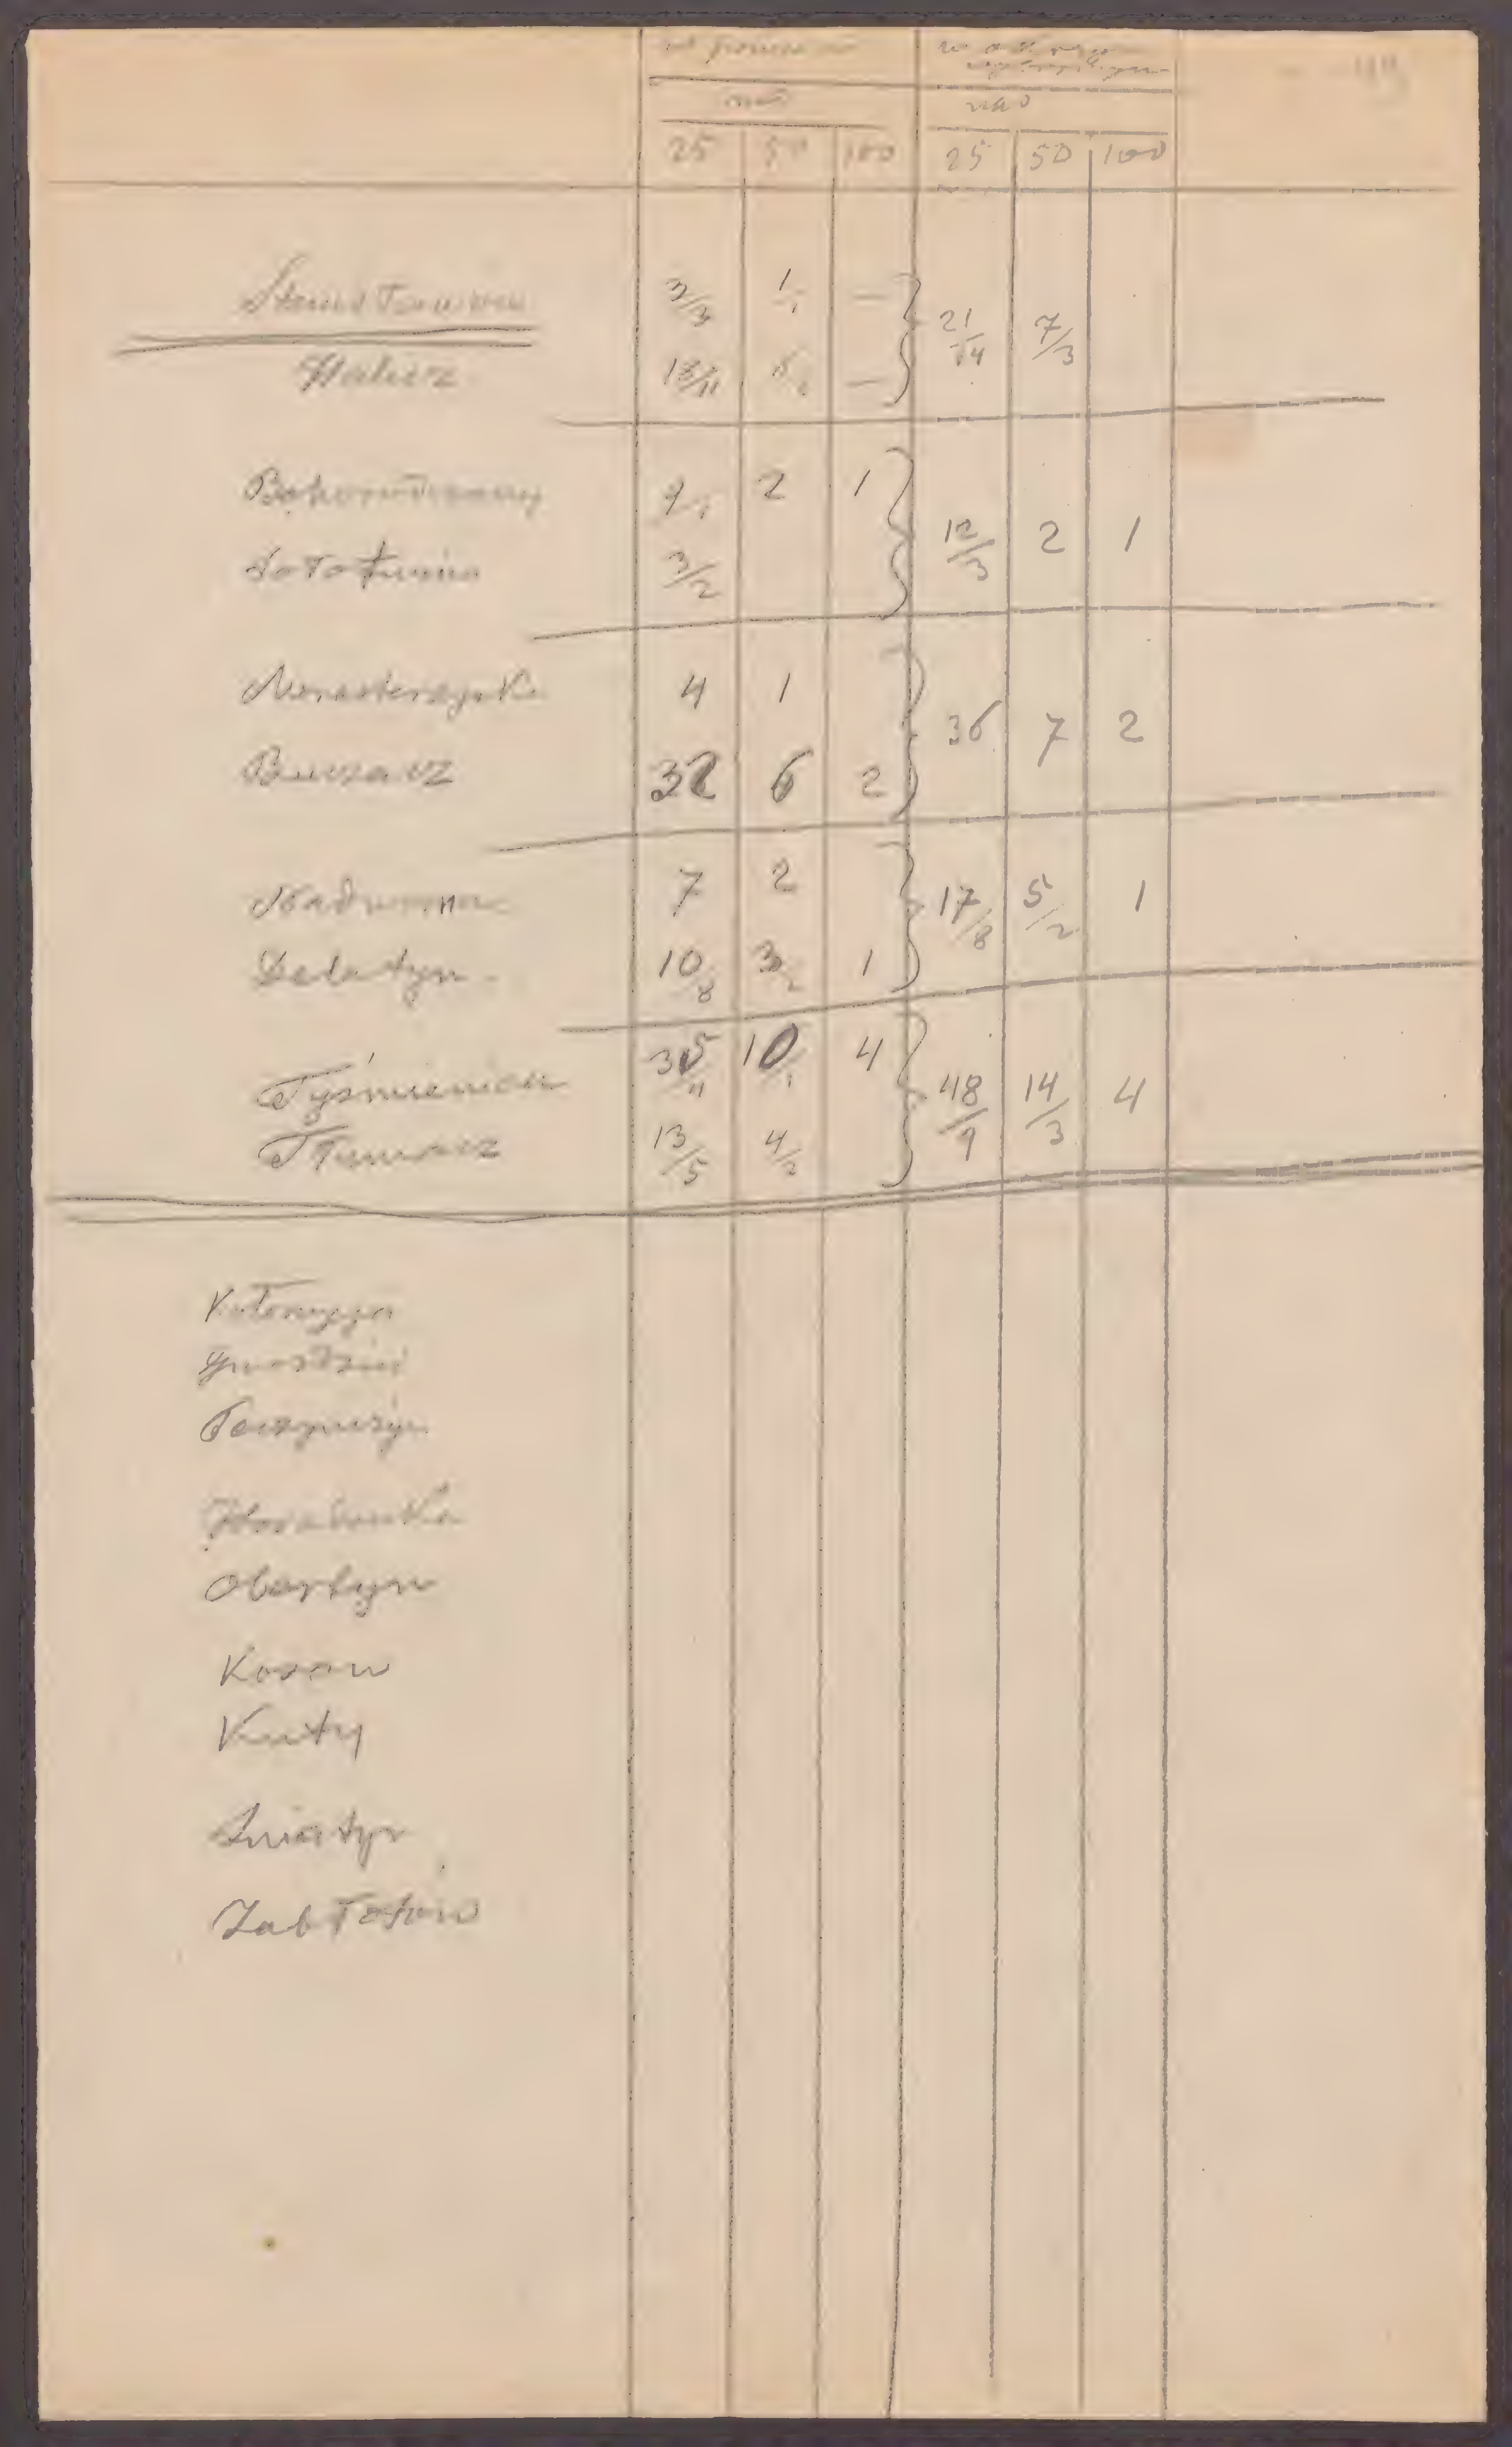 w
nad nad
25 50 100 25 50 100
Stanisławow 3/3 1/1 — 21/14 7/3
Halicz 18/11 6/2 —
Bohorodczany 9/1 2 1 12/3 2 1
Sołotwina 3/2
Monasterzyska 4 1 36 7 2
Buczacz 32 6 2
Nadworna 7 2 17/8 5/2 1
Delatyn 10/8 3/2 1
Tyśmienica 35/4 10/1 4 48/9 14/3 4
Tłumacz 13/5 4/2
Kołomyja
Gwoździec
Peczyniżyn
Horodenka
Obertyn
Kosow
Kuty
Sniatyn
Zabłotów